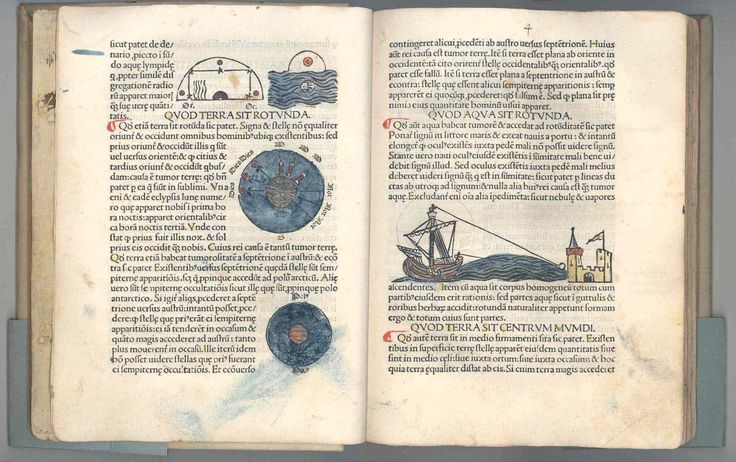 sicut patet de de-
nario ꝓiecto ī fū-
do aquę lympidę
ꝙ ꝓpter similē dis
gregationē radio
rū apparet maior
ꝗ̄ suę uerę quāti-
tatis.
QVOD TERRA SIT ROTVNDA.
Qđ etiā terra sit rotūda sic patet. Signa & stellę nō equaliter
oriunt̄ & occidunt omnibus hominibꝰ ubiqꝫ existentibus: sed
prius oriunt̄ & occidūt illis q̄ sūt
uel uersus orientē: & ꝙ citius &
tardius oriunt̄ & occidūt qbus-
dam: causa ē tumor terrę: qđ bn̄
patet ꝑ ea q̄ fiūt in sublimi. Vna
eni & eadē eclypsis lunę nume-
ro quę apparet nobis i prima ho
ra noctis: apparet orientalibꝰ cir
ca horā noctis tertiā. Vnde con-
stat ꝙ prius fuit illis nox. & sol
prius eis occidit ꝗ̄ nobis. Cuius rei causa ē tantū tumor terrę.
Qđ terra etiā habeat tumorositatē a septētrione i austrū & ecō
tra sic patet. Existentibꝰ uersus septētrionē quędā stellę sūt sem
piternę apparitiōis. scꝫ q̄ ppinque accedūt ad polū arcticū. Alię
uero sūt sēpiternę occultatiōis sicut illę q̄ sūt ppinque polo
antarctico. Si igit̄ aliꝗs ꝓcederet a septē
trione uersus austrū: intātū posset ꝓce-
dere: ꝙ stellę quę priꝰ erāt ei sempiternę
apparitiōis: ei iā tenderēt in occasum &
quāto magis accederet ad austrū: tanto
plus mouerent̄ in occasū. Ille iterū idem
hō posset uidere stellas quę priꝰ fuerant
ei sempiternę occultatiōis. Et ecōuerso
4
contingeret alicui ꝓcedēti ab austro uersus septētrionē. Huius
aūt rei causa est tumor terrę. Itē si terra esset plana ab oriente in
occidentē: tā cito orirent̄ stellę occidentalibꝰ ꝗ̄ orientalibꝰ. qđ
patet esse falsū. Itē si terra esset plana a septentrione in austrū &
econtra: stellę quę essent alicui sempiternę apparitionis: semp
apparerēt ei quocūqꝫ ꝓcederet: qđ falsum ē. Sed ꝙ plana sit prę
nimia eius quantitate hominū uisui apparet.
QVOD AQVA SIT ROTVNDA.
Qđ aūt aqua habeat tumorē & accedat ad rotūditatē sic patet
Ponat̄ signū in littore maris & exeat nauis a portu: & intantū
elonget̄ ꝙ oculꝰ existēs iuxta pedē mali non possit uidere signū.
Stante uero naui oculꝰ eiusdē existētis i sūmitate mali bene ui/
debit signū illud. Sed oculus existētis iuxta pedē mali melius
deberet uideri signū ꝗ̄ q̄ est in sūmitate: sicut patet ꝑ lineas du
ctas ab utroqꝫ ad signum: & nulla alia huiꝰ rei causa est ꝗ̄ tumor
aquę. Excludant̄ eni oia alia ipedimēta: sicut nebulę & uapores
ascendentes. Item cū aqua sit corpus homogeneū totum cum
partibꝰ eiusdem erit rationis: sed partes aquę sicut i guttulis &
roribus herbaꝝ accidit: rotundā naturaliter appetunt formam
ergo & totum cuius sunt partes.
QVOD TERRA SIT CENTRVM MVNDI.
Qđ autē terra sit in medio firmamenti sita sic patet. Existen
tibus in superficie terrę stellę apparēt eiusdem quantitatis siue
sint in medio cęli: siue iuxta ortum: siue iuxta occasum: & hoc
quia terra ęqualiter distat ab eis. Si enim terra magis accederet